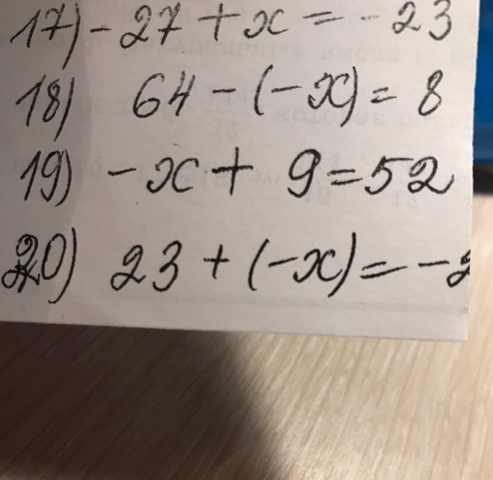 17) - 27 + x = - 23
18) 64 - (-x) = 8
19) - x + 9 = 52
20) 23 + (-x) = -